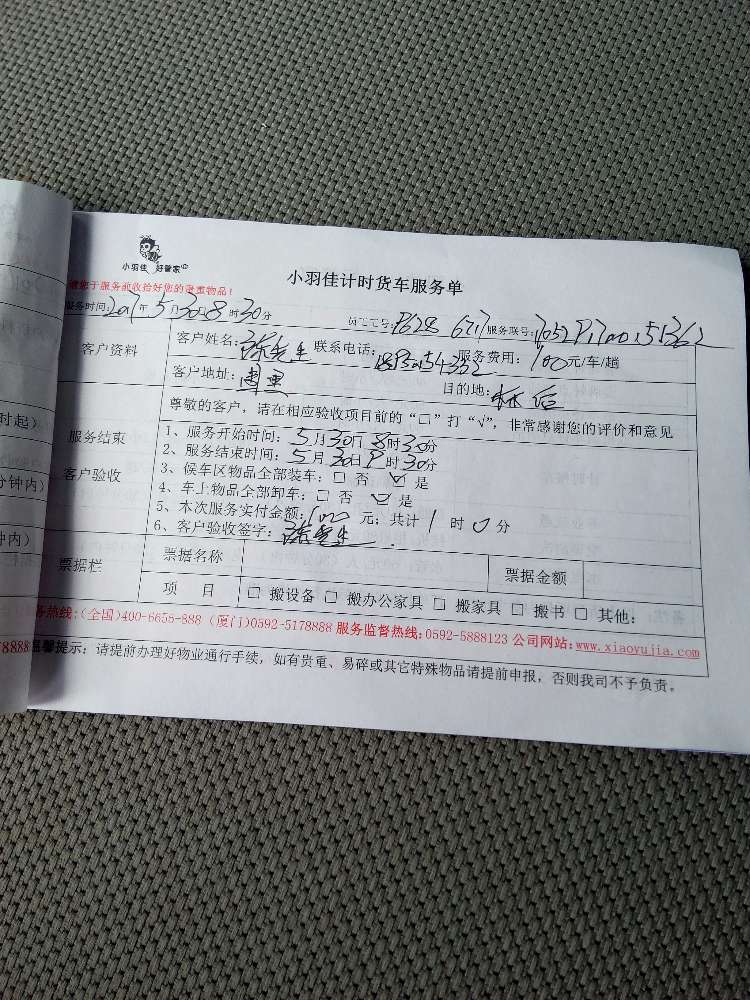 小羽佳 好管家
小羽佳计时货车服务单
请您于服务前收拾好您的贵重物品！
服务时间：2017年5月30日8时30分 员工工号：P628 6717 服务联号：
客户资料 客户姓名：陈先生 联系电话： 服务费用：100元/车/趟
客户地址： 目的地：林后
尊敬的客户，请在相应验收项目前的“口”打“√”，非常感谢您的评价和意见
服务结束
客户验收
1、服务开始时间：5月30日8时30分
2、服务结束时间：5月30日9时30分
3、候车区物品全部装车：□ 否 ☑ 是
4、车上物品全部卸车：□ 否 ☑ 是
5、本次服务实付金额：100元；共计1时0分
6、客户验收签字：陈先生
票据栏 票据名称 票据金额
项 目 □ 搬设备 □ 搬办公家具 □ 搬家具 □ 搬书 □ 其他：
务热线：(全国)400-6655-888 (厦门)0592-5178888 服务监督热线：0592-5888123 公司网站：www.xiaoyujia.com
温馨提示：请提前办理好物业通行手续，如有贵重、易碎或其它特殊物品请提前申报，否则我司不予负责。
时起）
分钟内）
钟内）
8888